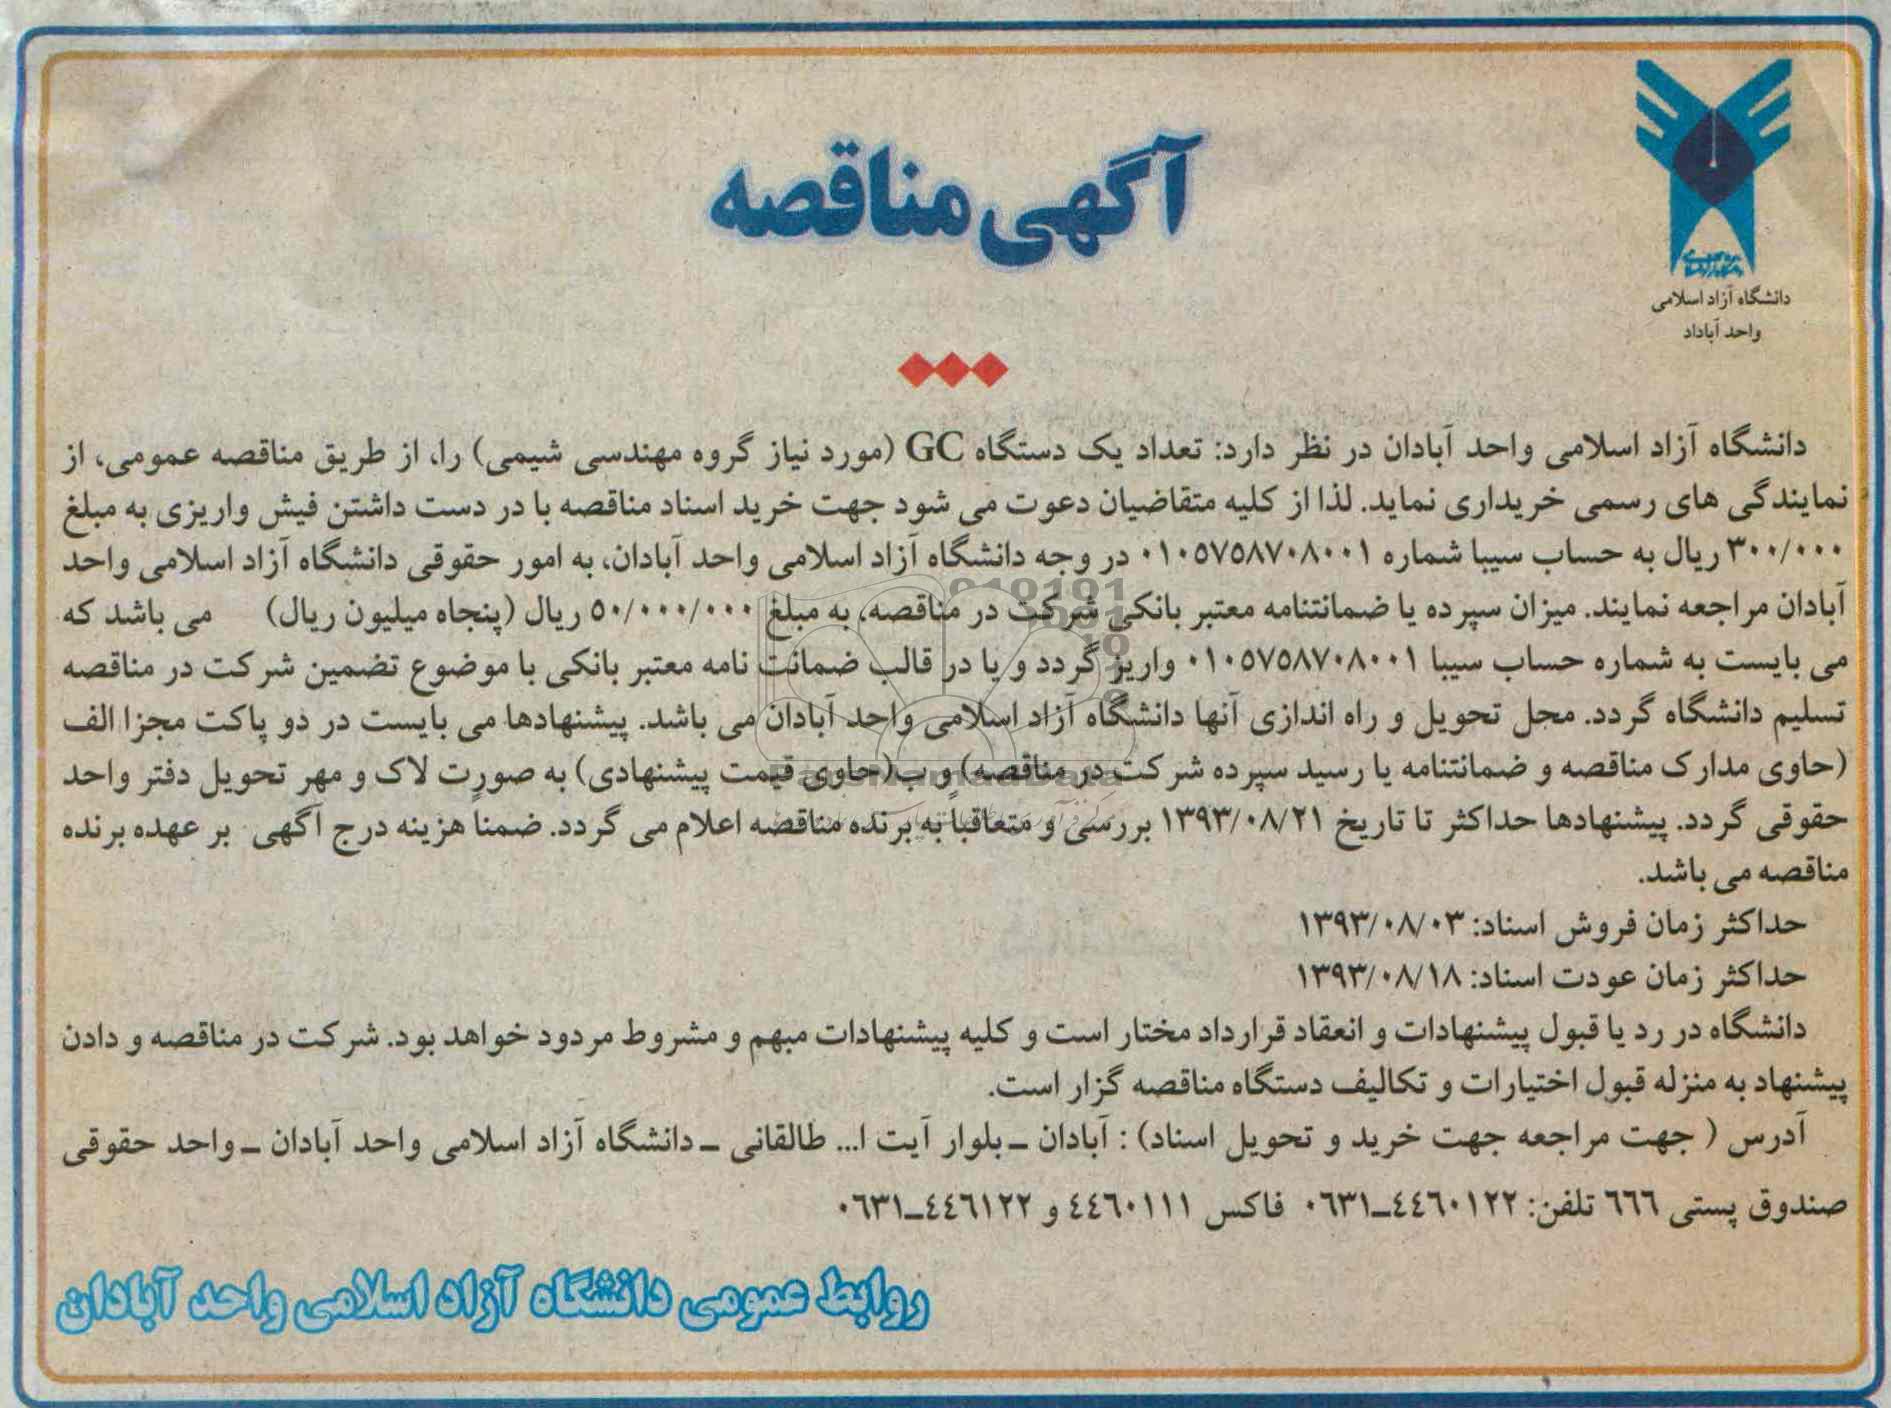 آگهی مناقصه
دانشگاه آزاد اسلامی
واحد آباداد
دانشگاه آزاد اسلامی واحد آبادان در نظر دارد: تعداد یک دستگاه GC (مورد نیاز گروه مهندسی شیمی) را، از طریق مناقصه عمومی، از
نمایندگی های رسمی خریداری نماید. لذا از کلیه متقاضیان دعوت می شود جهت خرید اسناد مناقصه با در دست داشتن فیش واریزی به مبلغ
۳۰۰/۰۰۰ ریال به حساب سیبا شماره ۰۱۰۵۷۵۸۷۰۸۰۰۱ در وجه دانشگاه آزاد اسلامی واحد آبادان، به امور حقوقی دانشگاه آزاد اسلامی واحد
آبادان مراجعه نمایند. میزان سپرده یا ضمانتنامه معتبر بانکی شرکت در مناقصه، به مبلغ ۵۰/۰۰۰/۰۰۰ ریال (پنجاه میلیون ریال) می باشد که
می بایست به شماره حساب سیبا ۰۱۰۵۷۵۸۷۰۸۰۰۱ واریز گردد و یا در قالب ضمانت نامه معتبر بانکی با موضوع تضمین شرکت در مناقصه
تسلیم دانشگاه گردد. محل تحویل و راه اندازی آنها دانشگاه آزاد اسلامی واحد آبادان می باشد. پیشنهادها می بایست در دو پاکت مجزا الف
(حاوی مدارک مناقصه و ضمانتنامه یا رسید سپرده شرکت در مناقصه) و ب(حاوی قیمت پیشنهادی) به صورت لاک و مهر تحویل دفتر واحد
حقوقی گردد. پیشنهادها حداکثر تا تاریخ ۱۳۹۳/۰۸/۲۱ بررسی و متعاقباً به برنده مناقصه اعلام می گردد. ضمناً هزینه درج آگهی بر عهده برنده
مناقصه می باشد.
حداکثر زمان فروش اسناد: ۱۳۹۳/۰۸/۰۳
حداکثر زمان عودت اسناد: ۱۳۹۳/۰۸/۱۸
دانشگاه در رد یا قبول پیشنهادات و انعقاد قرارداد مختار است و کلیه پیشنهادات مبهم و مشروط مردود خواهد بود. شرکت در مناقصه و دادن
پیشنهاد به منزله قبول اختیارات و تکالیف دستگاه مناقصه گزار است.
آدرس ( جهت مراجعه جهت خرید و تحویل اسناد) : آبادان ـ بلوار آیت ا... طالقانی ـ دانشگاه آزاد اسلامی واحد آبادان ـ واحد حقوقی
صندوق پستی ٦٦٦ تلفن: ٤٤٦٠١٢٢ـ٠٦٣١ فاکس ٤٤٦٠١١١ و ٤٤٦١٢٢ـ٠٦٣١
روابط عمومی دانشگاه آزاد اسلامی واحد آبادان